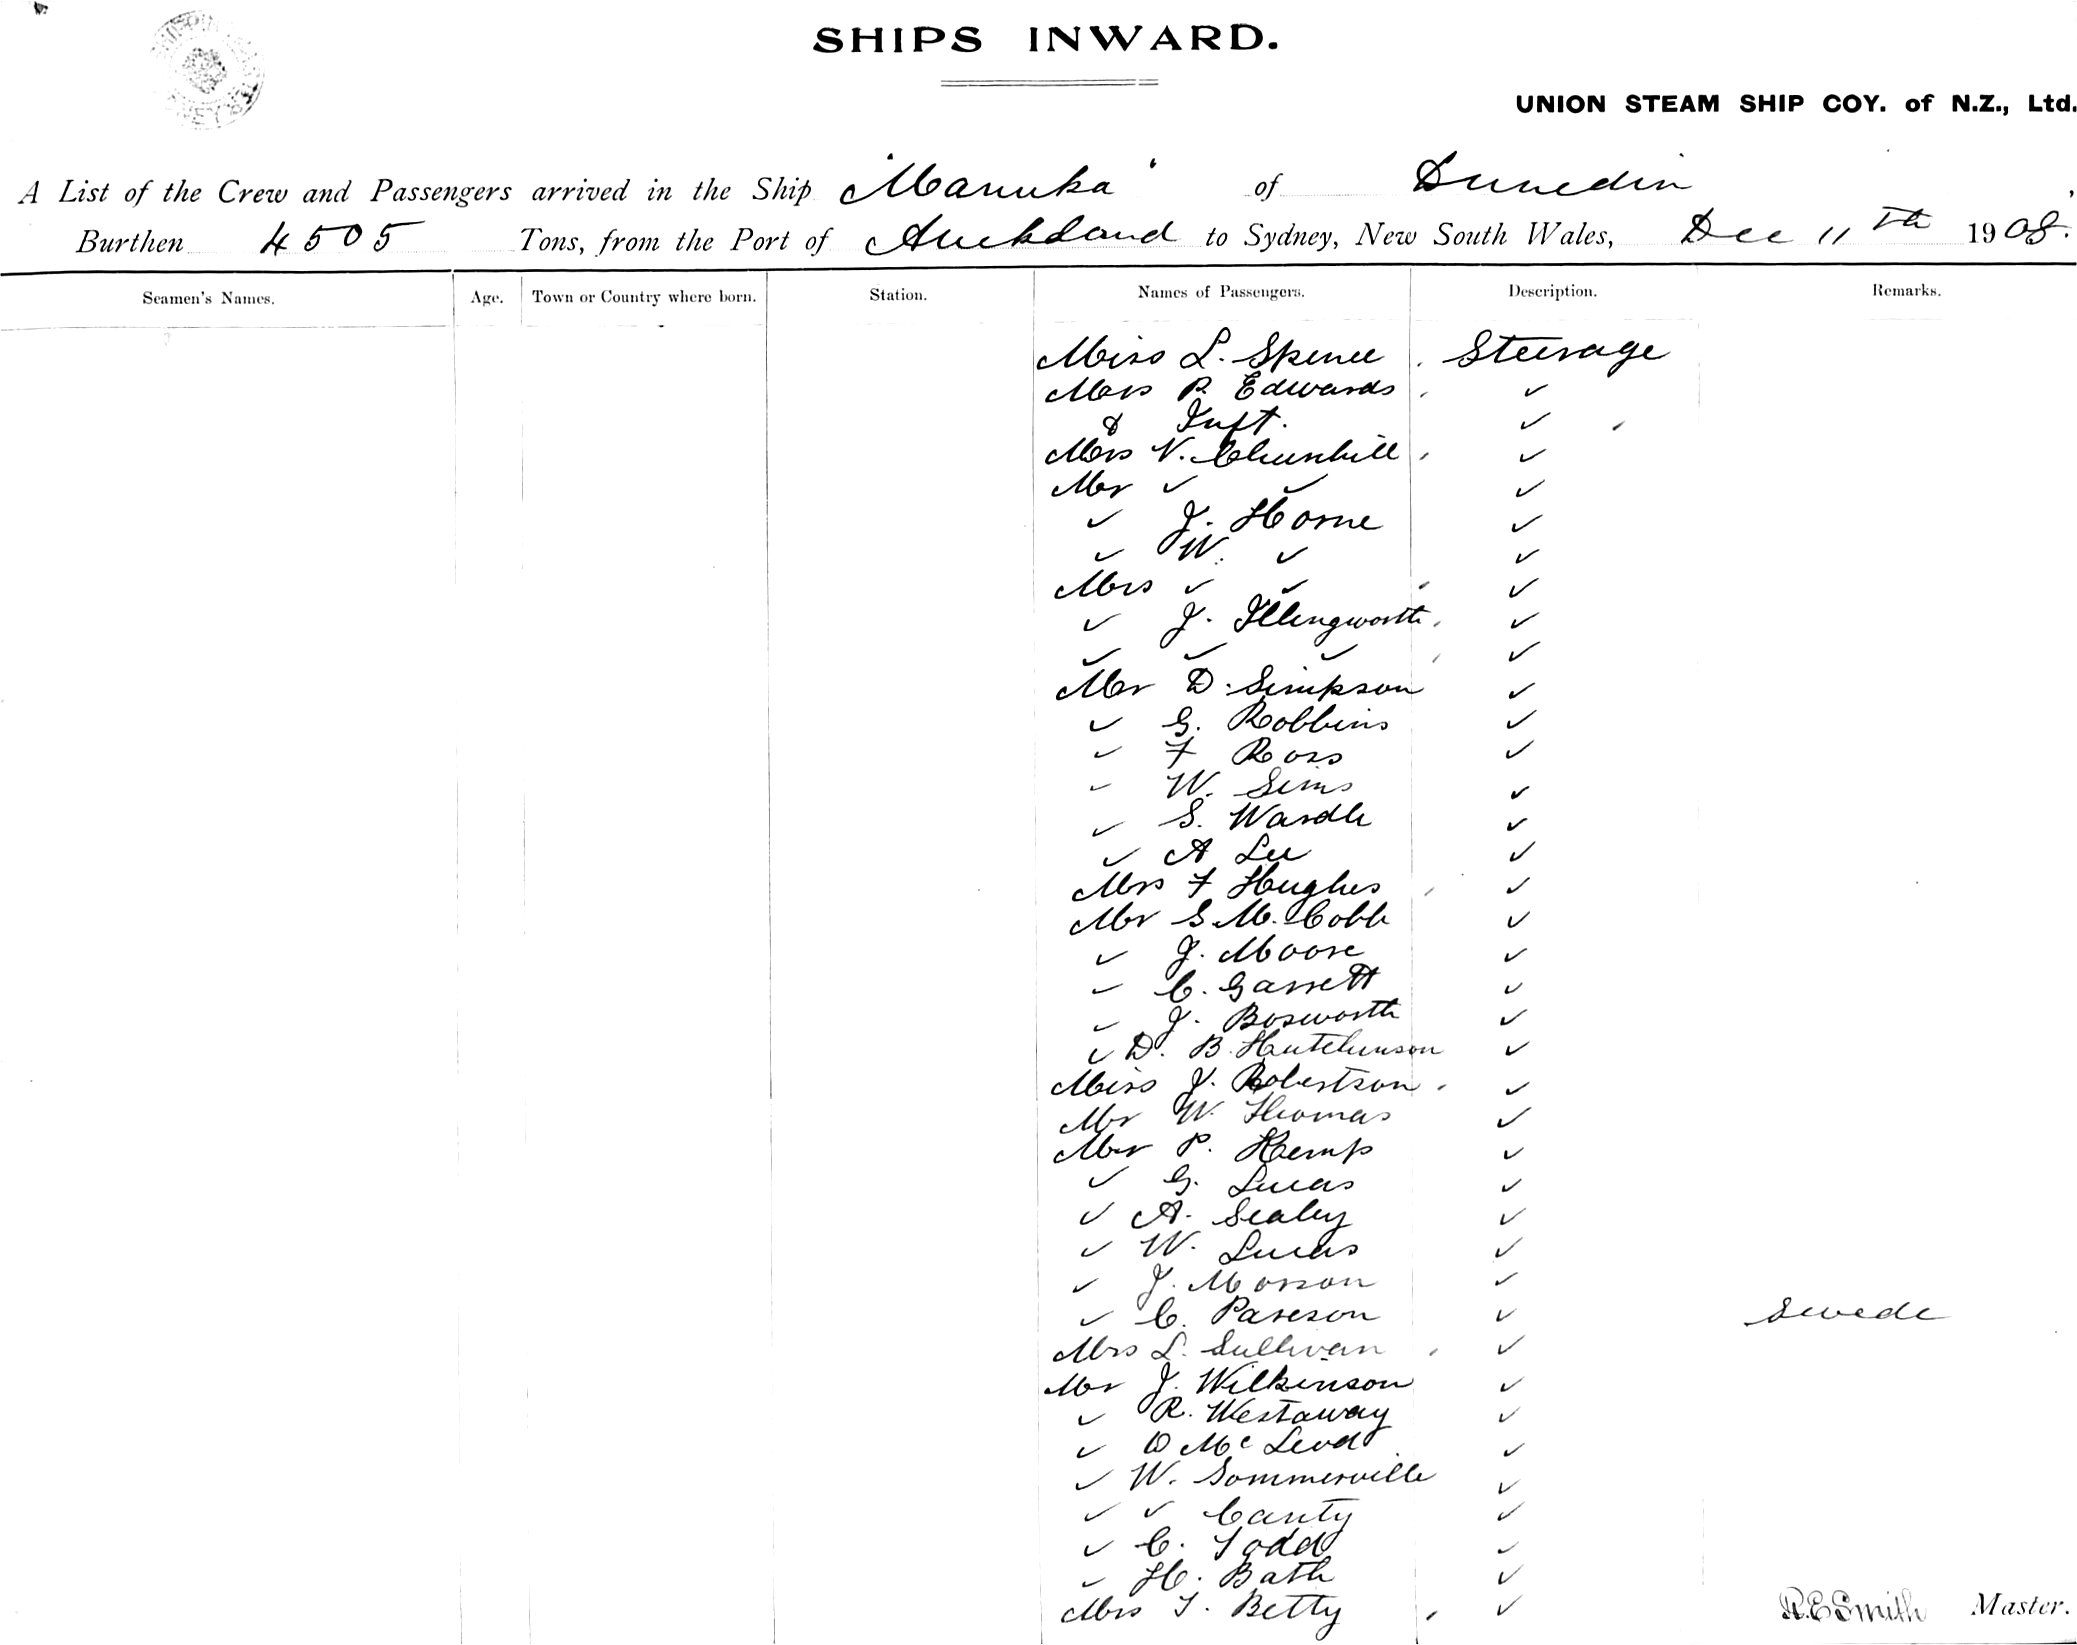 SHIPS INWARD.
UNION STEAM SHIP COY. of N.Z., Ltd.
A List of the Crew and Passengers arrived in the Ship "Manuka" of Dunedin
Burthen 4505 Tons, from the Port of Auckland to Sydney, New South Wales, Dec 11th 1908.
Seamen's Names. Age. Town or Country where born. Station. Names of Passengers. Description. Remarks.
Miss L. Spence Steerage
Mrs P. Edwards ✓
& Inft. ✓
Mrs N. Churchill ✓
Mr ✓ ✓ ✓
✓ J. Horne ✓
✓ W. ✓ ✓
Mrs ✓ ✓ ✓
✓ J. Illingworth ✓
✓ ✓ ✓ ✓
Mr D. Simpson ✓
✓ G. Robbins ✓
✓ F Ross ✓
✓ W. Sims ✓
✓ S. Wardle ✓
✓ A Lee ✓
Mrs F Hughes ✓
Mr S. M. Cobb ✓
✓ J. Moore ✓
✓ C. Garrett ✓
✓ J. Bosworth ✓
✓ D. B. Hutchinson ✓
Miss J. Robertson ✓
Mr W. Thomas ✓
Mr P. Kemp ✓
✓ G. Lucas ✓
✓ A. Sealey ✓
✓ W. Lucas ✓
✓ J. Morson ✓
✓ C. Pareson ✓ Swede
Mrs L. Sullivan ✓
Mr J. Wilkinson ✓
✓ R. Westaway ✓
✓ D McLeod ✓
✓ W. Sommerville ✓
✓ ✓ Canty ✓
✓ C. Todd ✓
✓ H. Bath ✓
Mrs T. Betty ✓
R.E Smith Master.